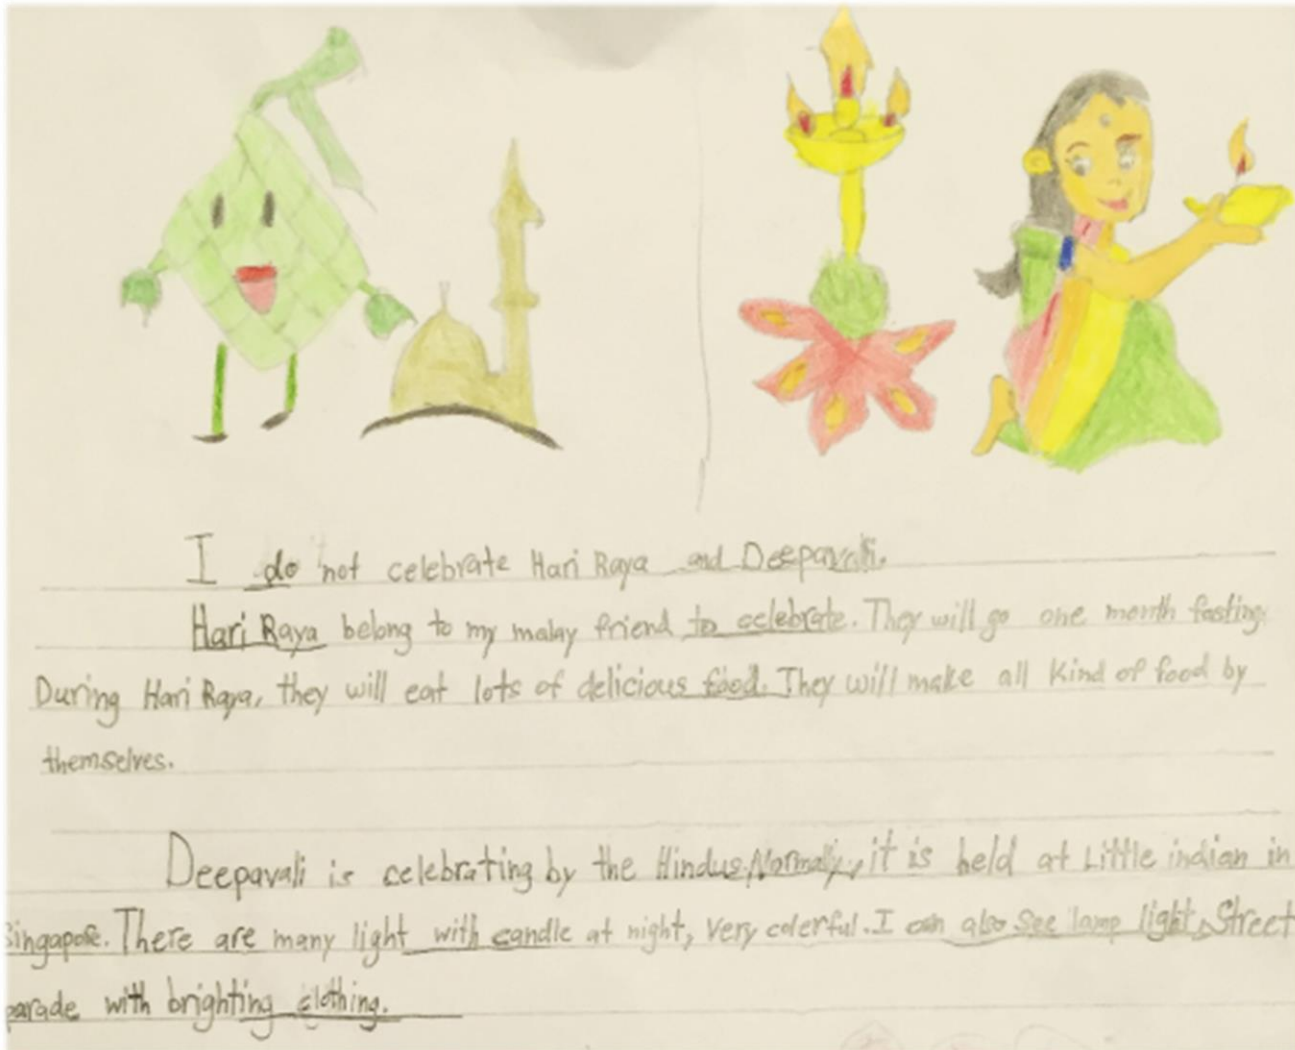 I do not celebrate Hari Raya and Deepavali.
Hari Raya belong to my malay friend to celebrate. They will go one month fasting.
During Hari Raya, they will eat lots of delicious food. They will make all kind of food by
themselves.
Deepavali is celebrating by the Hindus. Normally, it is held at Little indian in
Singapore. There are many light with candle at night, very colerful. I can also see lamp light, Street
parade with brighting clothing.